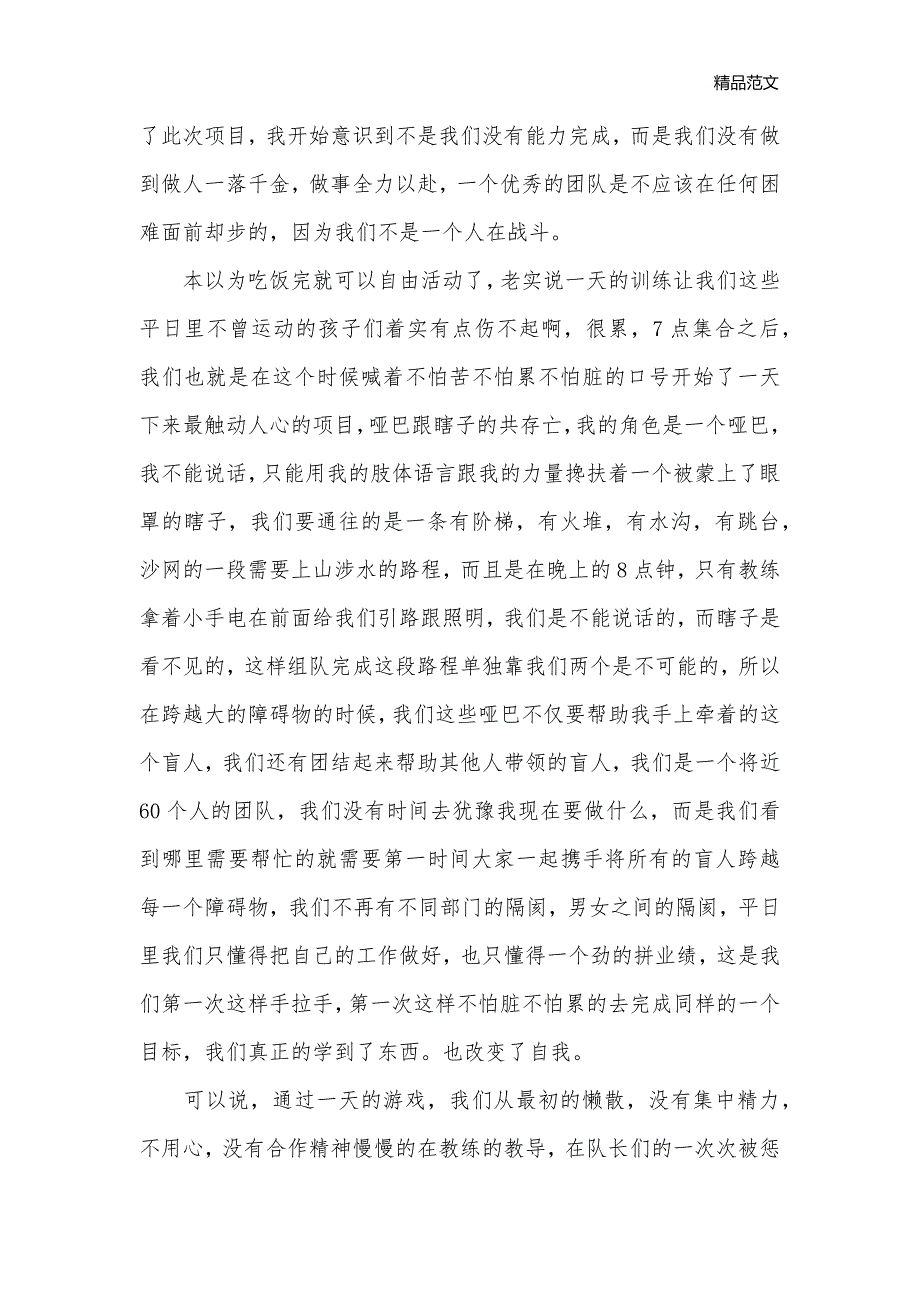 精品范文
了此次项目，我开始意识到不是我们没有能力完成，而是我们没有做
到做人一落千金，做事全力以赴，一个优秀的团队是不应该在任何困
难面前却步的，因为我们不是一个人在战斗。
本以为吃饭完就可以自由活动了，老实说一天的训练让我们这些
平日里不曾运动的孩子们着实有点伤不起啊，很累，7 点集合之后，
我们也就是在这个时候喊着不怕苦不怕累不怕脏的口号开始了一天
下来最触动人心的项目，哑巴跟瞎子的共存亡，我的角色是一个哑巴，
我不能说话，只能用我的肢体语言跟我的力量搀扶着一个被蒙上了眼
罩的瞎子，我们要通往的是一条有阶梯，有火堆，有水沟，有跳台，
沙网的一段需要上山涉水的路程，而且是在晚上的 8 点钟，只有教练
拿着小手电在前面给我们引路跟照明，我们是不能说话的，而瞎子是
看不见的，这样组队完成这段路程单独靠我们两个是不可能的，所以
在跨越大的障碍物的时候，我们这些哑巴不仅要帮助我手上牵着的这
个盲人，我们还有团结起来帮助其他人带领的盲人，我们是一个将近
60 个人的团队，我们没有时间去犹豫我现在要做什么，而是我们看
到哪里需要帮忙的就需要第一时间大家一起携手将所有的盲人跨越
每一个障碍物，我们不再有不同部门的隔阂，男女之间的隔阂，平日
里我们只懂得把自己的工作做好，也只懂得一个劲的拼业绩，这是我
们第一次这样手拉手，第一次这样不怕脏不怕累的去完成同样的一个
目标，我们真正的学到了东西。也改变了自我。
可以说，通过一天的游戏，我们从最初的懒散，没有集中精力，
不用心，没有合作精神慢慢的在教练的教导，在队长们的一次次被惩